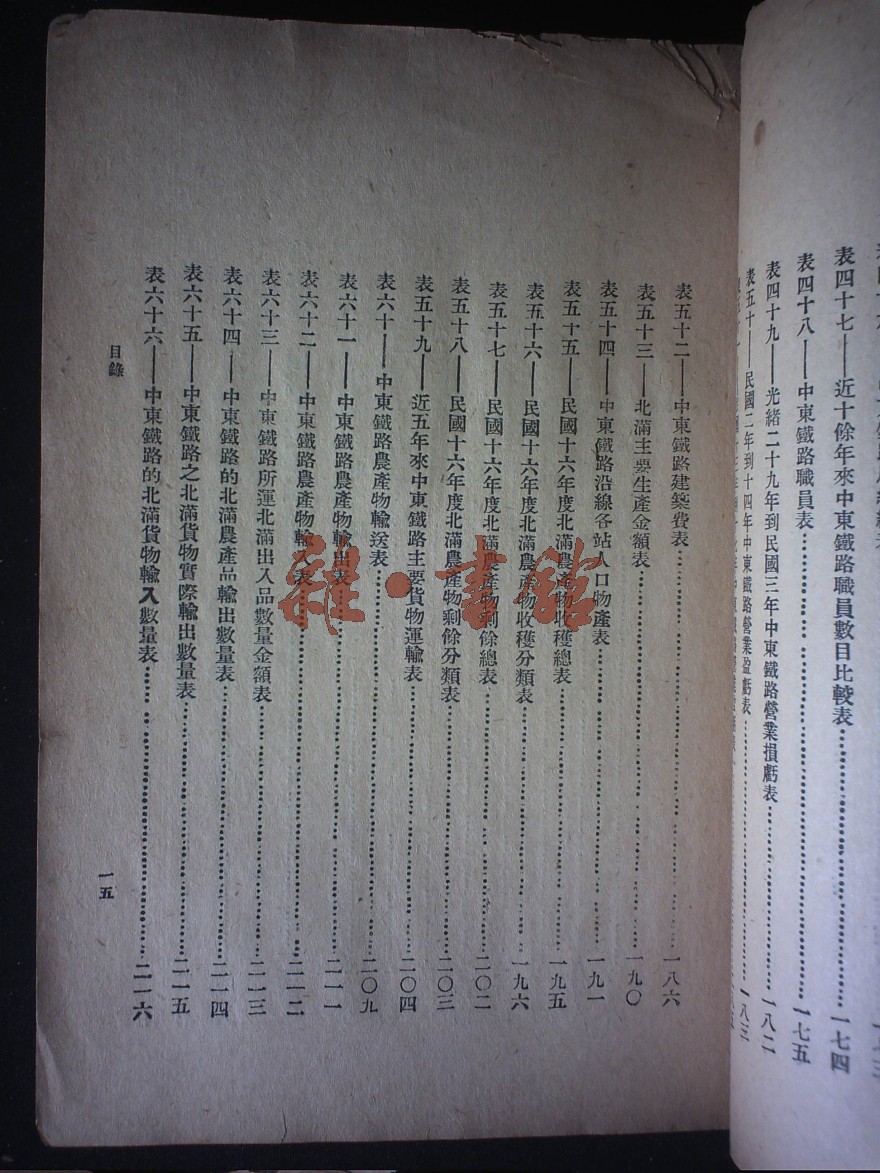 表四十七——近十餘年來中東鐵路職員數目比較表……一七四
表四十八——中東鐵路職員表……一七五
表四十九——光緒二十九年到民國三年中東鐵路營業損虧表……一八二
表五十——民國二年到十四年中東鐵路營業盈虧表……一八三
表五十二——中東鐵路建築費表……一八六
表五十三——北滿主要生產金額表……一九〇
表五十四——中東鐵路沿線各站人口物產表……一九一
表五十五——民國十六年度北滿農產物收穫總表……一九五
表五十六——民國十六年度北滿農產物收穫分類表……一九六
表五十七——民國十六年度北滿農產物剩餘總表……二〇二
表五十八——民國十六年度北滿農產物剩餘分類表……二〇三
表五十九——近五年來中東鐵路主要貨物運輸表……二〇四
表六十——中東鐵路農產物輸送表……二〇九
表六十一——中東鐵路農產物輸出表……二一一
表六十二——中東鐵路農產物輸入表……二一二
表六十三——中東鐵路所運北滿出入品數量金額表……二一三
表六十四——中東鐵路的北滿農產品輸出數量表……二一四
表六十五——中東鐵路之北滿貨物實際輸出數量表……二一五
表六十六——中東鐵路的北滿貨物輸入數量表……二一六
目錄
一五
雜·書館